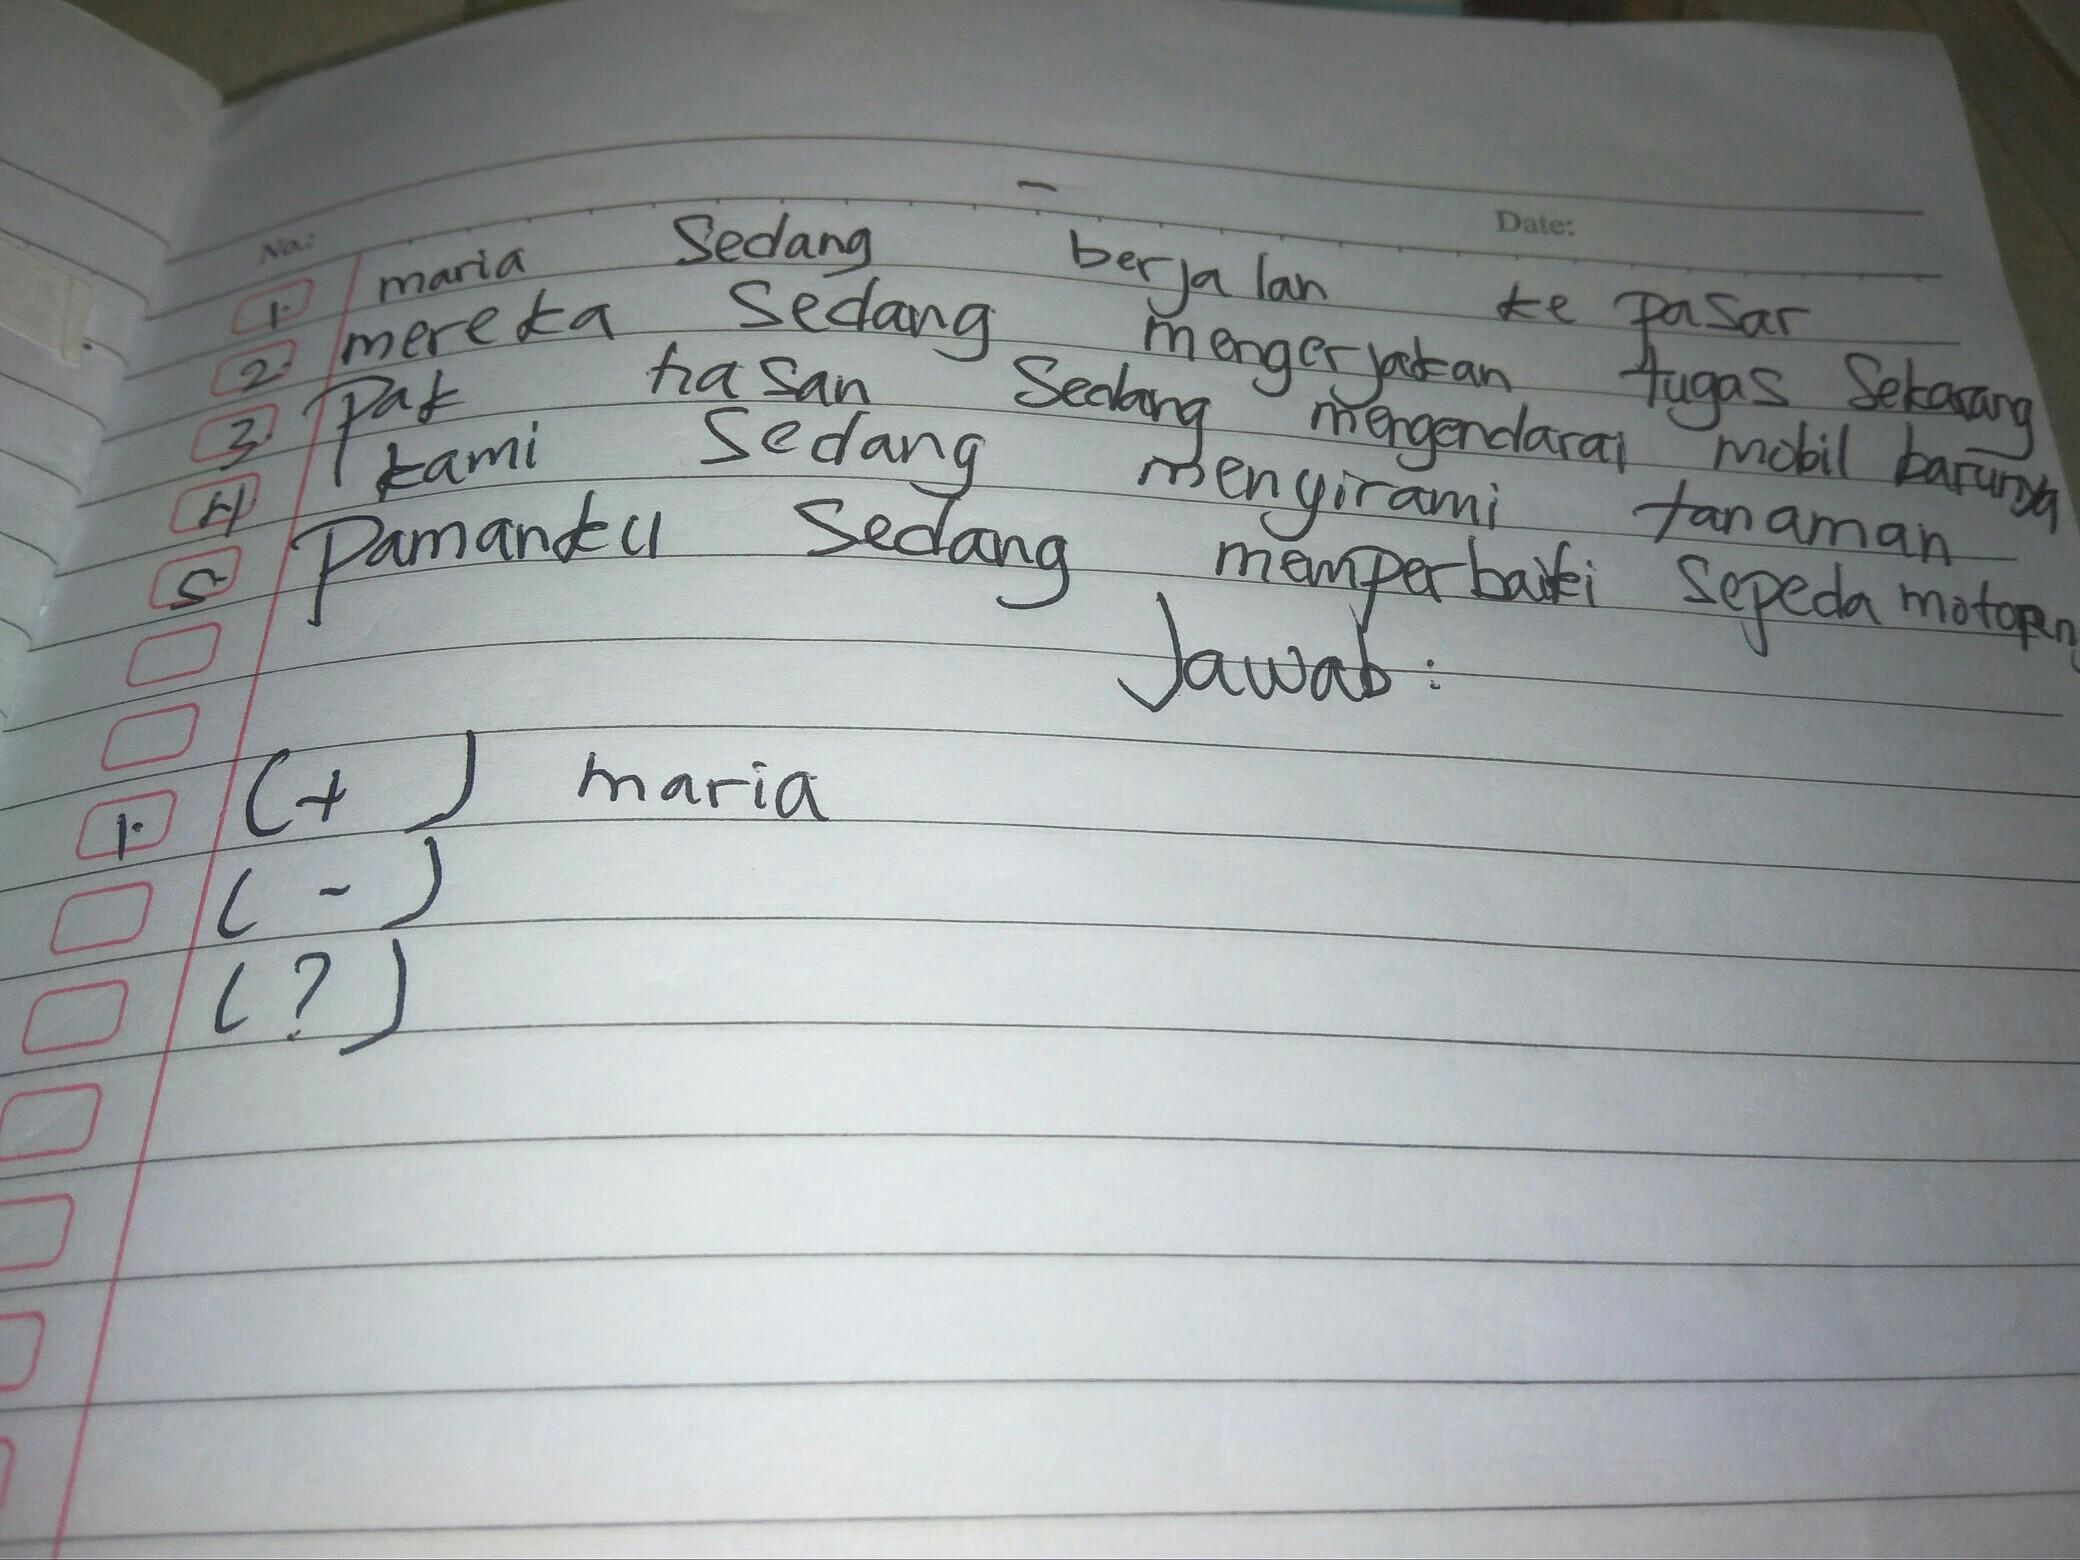 No.:
Date:
1. maria Sedang berjalan ke pasar
2. mereka Sedang mengerjakan tugas Sekarang
3. Pak hasan Sedang mengendarai mobil barunya
4 kami Sedang menyirami tanaman
5 Pamanku Sedang memperbaiki Sepeda
Jawab:
1. (+) maria
(-)
(?)